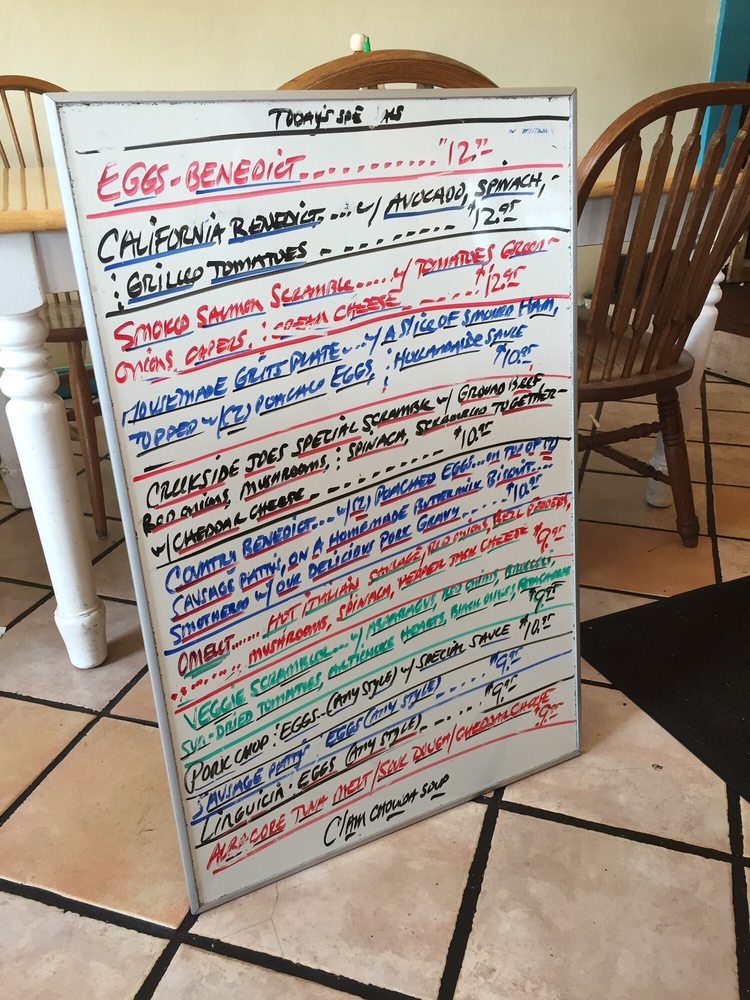 TODAY'S SPE ALS
EGGS-BENEDICT........... $12.95
CALIFORNIA BENEDICT.... w/ AVOCADO, SPINACH,
; GRILLED TOMATOES ........ $12.95
SMOKED SALMON SCRAMBLE..... w/ TOMATOES GREEN-
ONIONS, CAPERS, ; CREAM CHEESE ...... $12.95
HOUSEMADE GRITS PLATE... w/ A SLICE OF SMOKED HAM,
TOPPED w/(2) POACHED EGGS, ; HOLLANDAISE SAUCE
$10.95
CREEKSIDE JOES SPECIAL SCRAMBLE w/ GROUND BEEF,
RED ONIONS, MUSHROOMS, ; SPINACH, SCRAMBLED TOGETHER-
w/ CHEDDAR CHEESE ........ $10.95
COUNTRY BENEDICT... w/(2) POACHED EGGS... ON TOP OF
SAUSAGE PATTY, ON A HOMEMADE BUTTERMILK BISCUIT...
SMOTHERED w/ OUR DELICIOUS PORK GRAVY..... $10.95
OMELET...... HOT ITALIAN SAUSAGE, RED ONIONS, BELL PEPPERS,
MUSHROOMS, SPINACH, PEPPER JACK CHEESE $9.95
VEGGIE SCRAMBLE... w/ ASPARAGUS, RED ONIONS, BROCCOLI,
SUN-DRIED TOMATOES, ARTICHOKE HEARTS, BLACK OLIVES,
$9.95
PORK CHOP ; EGGS-(ANY STYLE) w/ SPECIAL SAUCE $10.95
SAUSAGE PATTY EGGS (ANY STYLE) ...... $9.95
LINGUICIA ; EGGS (ANY STYLE) ....... $9.95
ALBACORE TUNA MELT/SOUR DOUGH/CHEDDAR CHEESE
$9.95
Clam CHOWDA SOUP